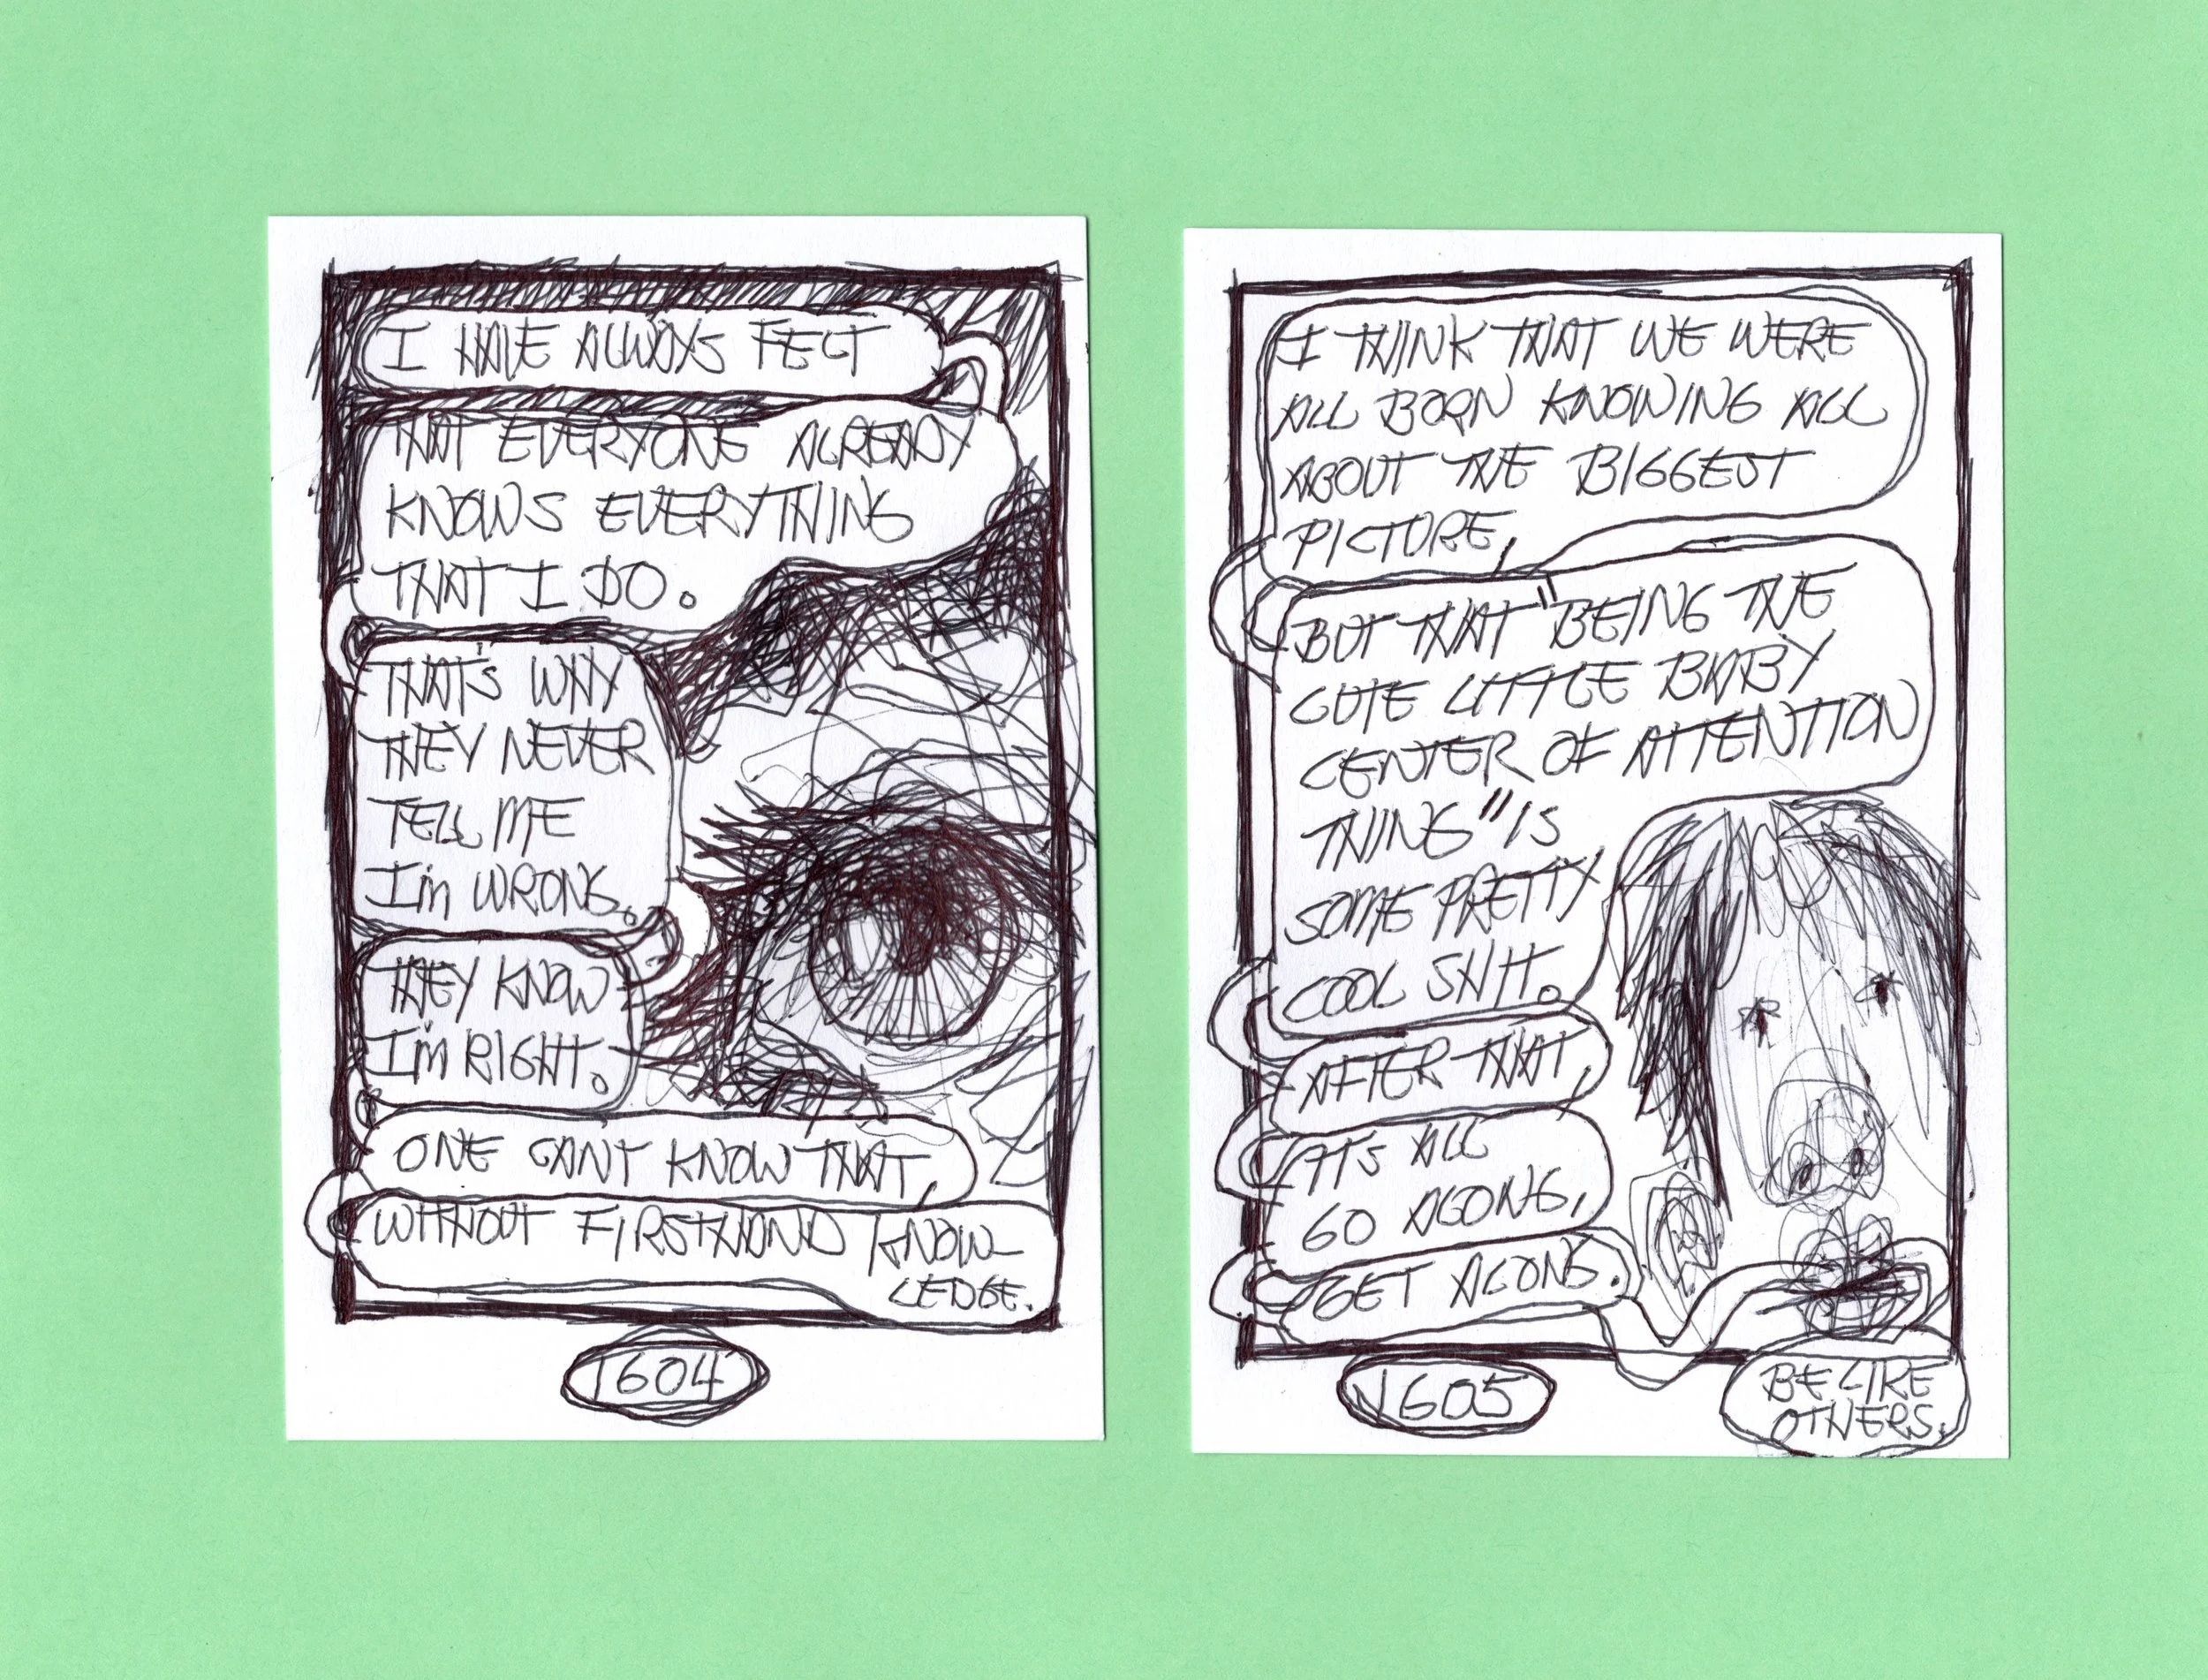 I HAVE ALWAYS FELT
THAT EVERYONE ALREADY
KNOWS EVERYTHING
THAT I DO.
THAT'S WHY
THEY NEVER
TELL ME
I'm WRONG.
THEY KNOW
I'm RIGHT.
ONE CAN'T KNOW THAT,
WITHOUT FIRSTHAND KNOW-
LEDGE.
1604
I THINK THAT WE WERE
ALL BORN KNOWING ALL
ABOUT THE BIGGEST
PICTURE,
BUT THAT "BEING THE
CUTE LITTLE BABY
CENTER OF ATTENTION
THING" IS
SOME PRETTY
COOL SHIT.
AFTER THAT,
IT'S ALL
GO ALONG,
GET ALONG.
1605
BE LIKE
OTHERS.